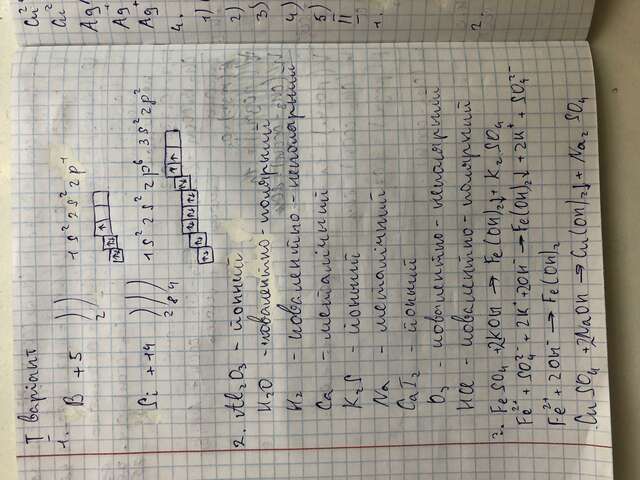 I варіант
1. B +5 ))) 1s² 2s² 2p¹
2
Si +14 )))) 1s² 2s² 2p⁶ 3s² 2p²
2 8 4
2. Al₂O₃ - йонний
H₂O - ковалентно - полярний
H₂ - ковалентно - неполярний
Ca - металічний
K₂S - йонний
Na - металічний
CaI₂ - йонный
O₃ - ковалентно - неполярний
HCl - ковалентно - полярний
3. FeSO₄ + 2KOH → Fe(OH)₂↓ + K₂SO₄
Fe²⁺ + SO₄²⁻ + 2K⁺ + 2OH⁻ → Fe(OH)₂↓ + 2K⁺ + SO₄²⁻
Fe²⁺ + 2OH⁻ → Fe(OH)₂
CuSO₄ + 2NaOH → Cu(OH)₂↓ + Na₂SO₄
Cu²⁺
Cu²
Ag⁺
Ag⁺
Ag
4.
1)
2)
3)
4)
5)
II
1.
2.